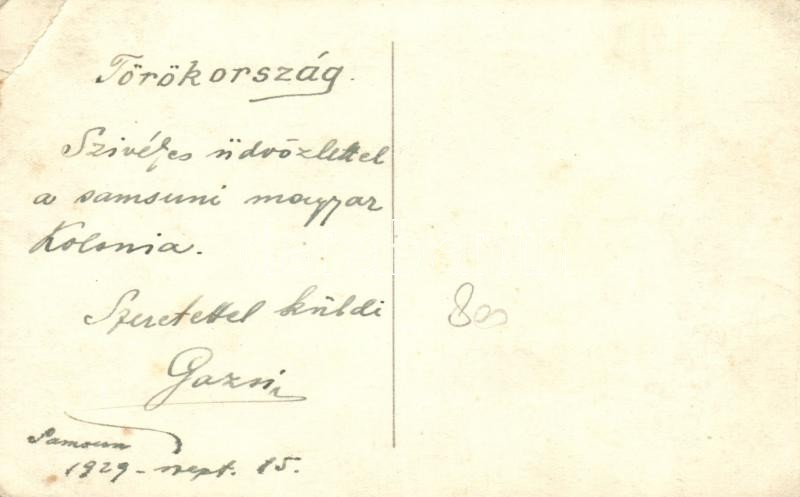 Törökország.
Szivélyes üdvözlettel
a samsuni magyar
Kolonia.
Szeretettel küldi
Gazsi
Samsun
1929 - sept. 15.
800